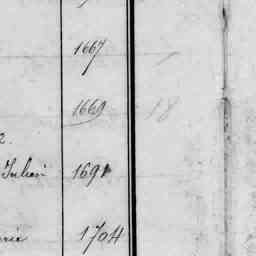 1667
1669
18
2.
Julien 1691
1704